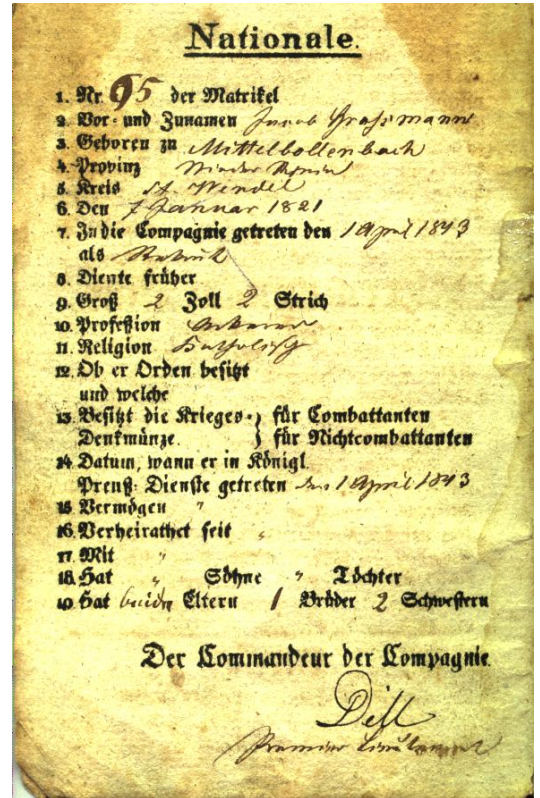 Nationale.
1. Nr. 95 der Matrikel
2. Vor- und Zunamen Jacob Grossmann
3. Geboren zu Mittelbollenbach
4. Provinz Nieder Rhein
5. Kreis St. Wendel
6. Den 7 Januar 1821
7. In die Compagnie getreten den 1 April 1843
als Rekrut
8. Diente früher
9. Groß 2 Zoll 2 Strich
10. Profeßion Ackerer
11. Religion Katholisch
12. Ob er Orden besitzt
und welche
13. Besitzt die Krieges- } für Combattanten
Denkmünze. } für Nichtcombattanten
14. Datum, wann er in Königl.
Preuß. Dienste getreten den 1 April 1843
15. Vermögen "
16. Verheirathet seit "
17. Mit "
18. Hat " Söhne " Töchter
19. Hat beide Eltern 1 Brüder 2 Schwestern
Der Commandeur der Compagnie.
Dill
Premier Lieutenant